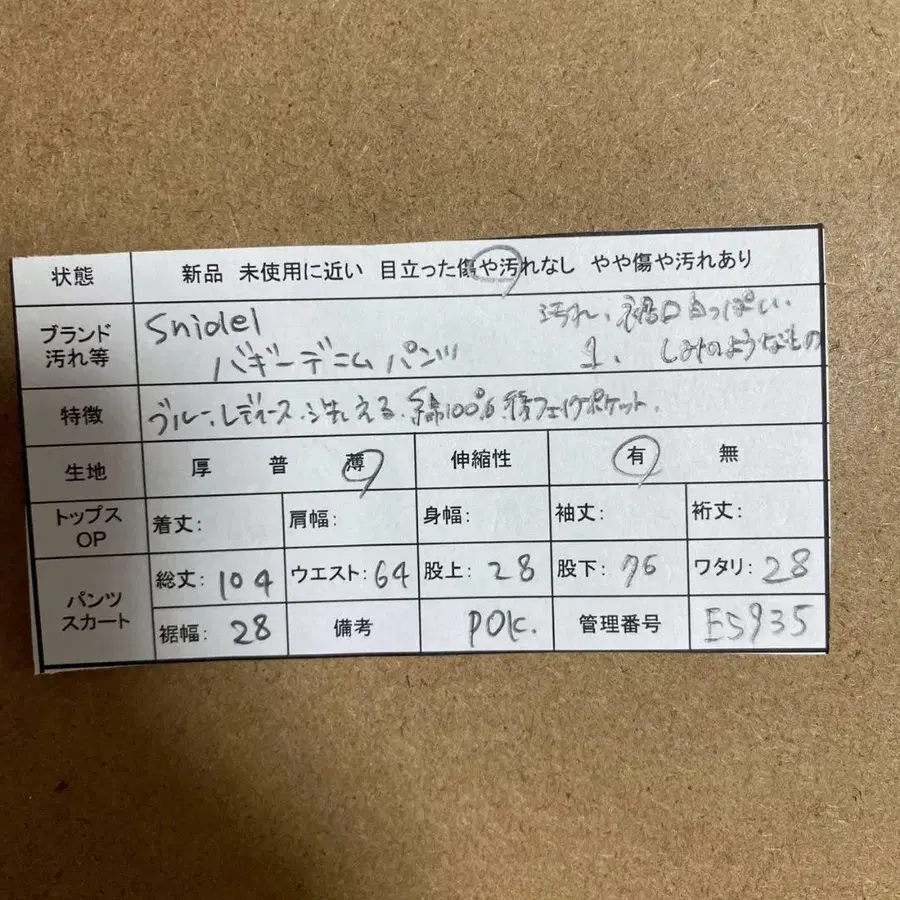 状態 新品 未使用に近い 目立った傷や汚れなし やや傷や汚れあり
ブランド 汚れ等 Snidel 汚れ、裾口白っぽい、
バギーデニムパンツ 1、しみのようなもの
特徴 ブルー、レディース、洗える、綿100% フェイクポケット、
生地 厚 普 薄 伸縮性 有 無
トップス OP 着丈: 肩幅: 身幅: 袖丈: 裄丈:
パンツ スカート 総丈: 104 ウエスト: 64 股上: 28 股下: 76 ワタリ: 28
裾幅: 28 備考 POK. 管理番号 E5935